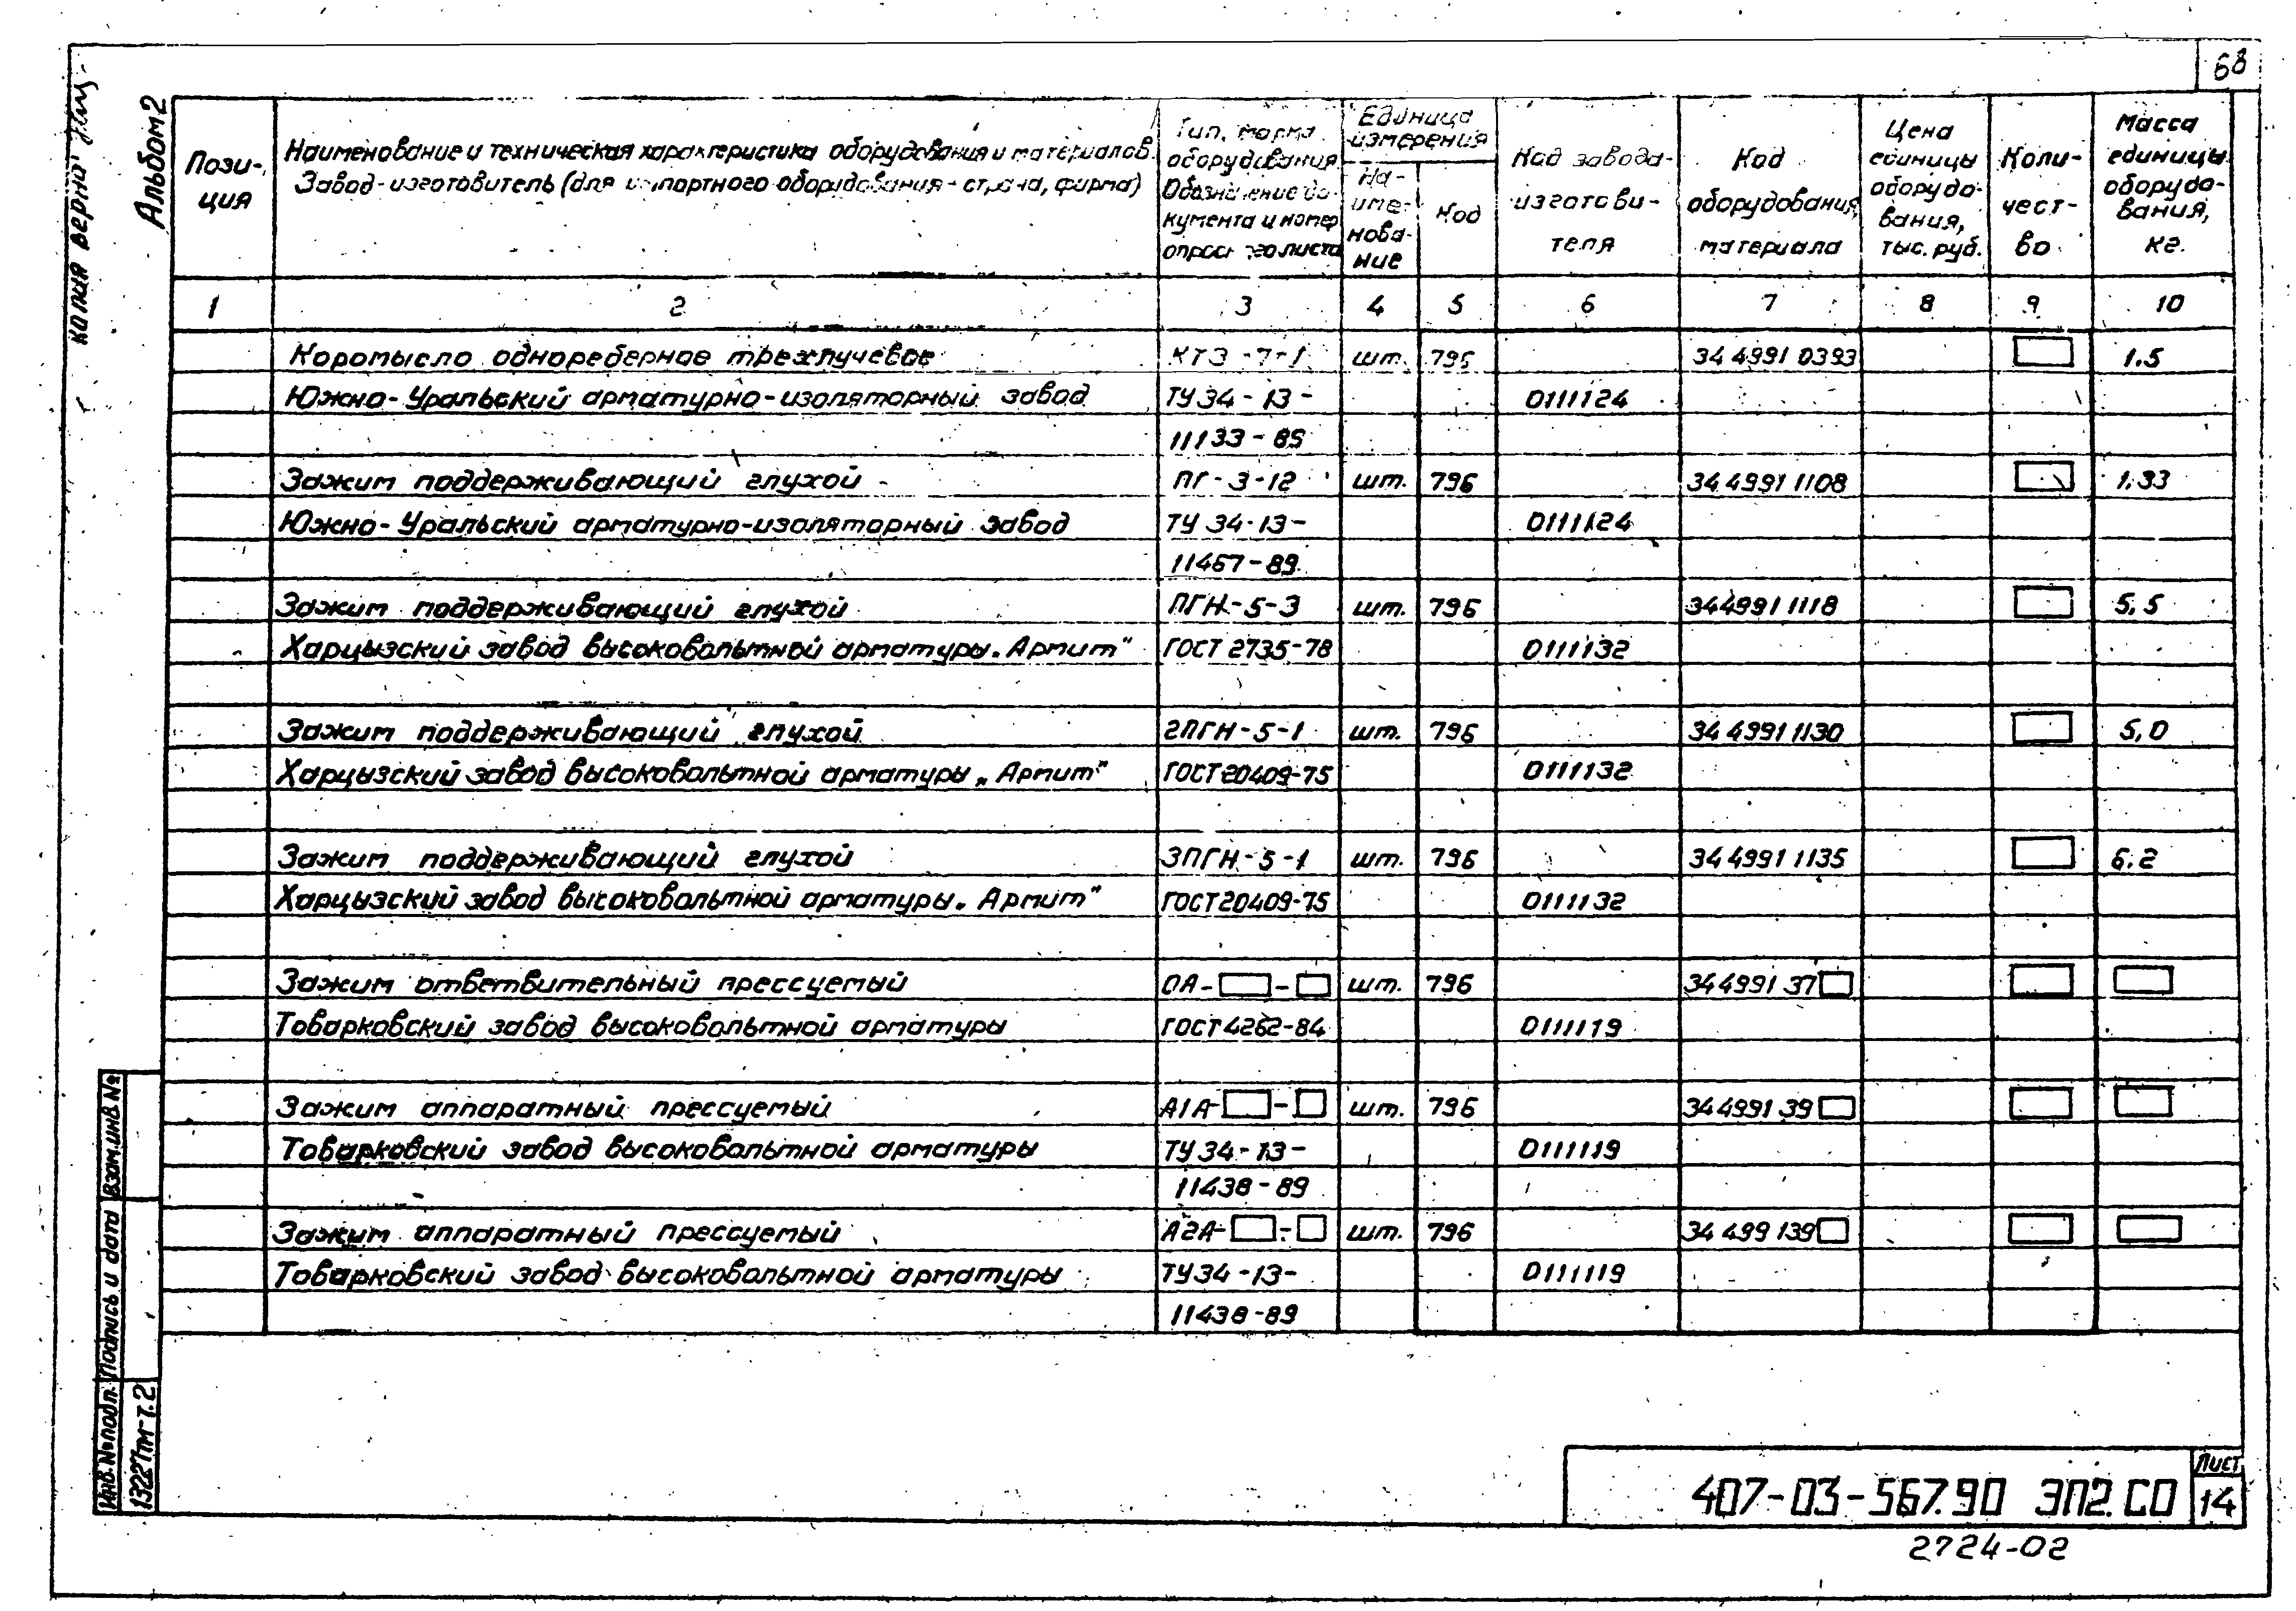 68
Копия верна
Альбом 2
Пози-
ция
Наименование и техническая характеристика оборудования и материалов.
Завод-изготовитель (для импортного оборудования - страна, фирма)
Тип, марка
оборудования
Обозначение до-
кумента и номер
опросного листа
Единица
измерения
На-
име-
нова-
ние
Код
Код завода-
изготови-
теля
Код
оборудования,
материала
Цена
единицы
оборудо-
вания,
тыс. руб.
Коли-
чест-
во
Масса
единицы
оборудо-
вания,
кг.
1 2 3 4 5 6 7 8 9 10
Коромысло однореберное трехлучевое КТ3-7-1 шт. 796 34 4991 0393 1.5
Южно-Уральский арматурно-изоляторный завод ТУ 34-13- 0111124
11133-85
Зажим поддерживающий глухой ПГ-3-12 шт. 796 34 4991 1108 1.33
Южно-Уральский арматурно-изоляторный завод ТУ 34-13- 0111124
11467-89
Зажим поддерживающий глухой ПГН-5-3 шт. 796 34 4991 1118 5,5
Харцызский завод высоковольтной арматуры „Армит" ГОСТ 2735-78 0111132
Зажим поддерживающий глухой 2ПГН-5-1 шт. 796 34 4991 1130 5,0
Харцызский завод высоковольтной арматуры „Армит" ГОСТ 20409-75 0111132
Зажим поддерживающий глухой 3ПГН-5-1 шт. 796 34 4991 1135 6.2
Харцызский завод высоковольтной арматуры „Армит" ГОСТ 20409-75 0111132
Зажим ответвительный прессуемый ОА- - шт. 796 34 4991 37
Товарковский завод высоковольтной арматуры ГОСТ 4262-84 0111119
Зажим аппаратный прессуемый А1А- - шт. 796 34 4991 39
Товарковский завод высоковольтной арматуры ТУ 34-13- 0111119
11438-89
Зажим аппаратный прессуемый А2А- - шт. 796 34 499 139
Товарковский завод высоковольтной арматуры ТУ 34-13- 0111119
11438-89
Взам. инв. №
Подпись и дата
Инв. № подл.
13227тм-т.2
407-03-567.90 ЭП2.СО
Лист
14
2724-02